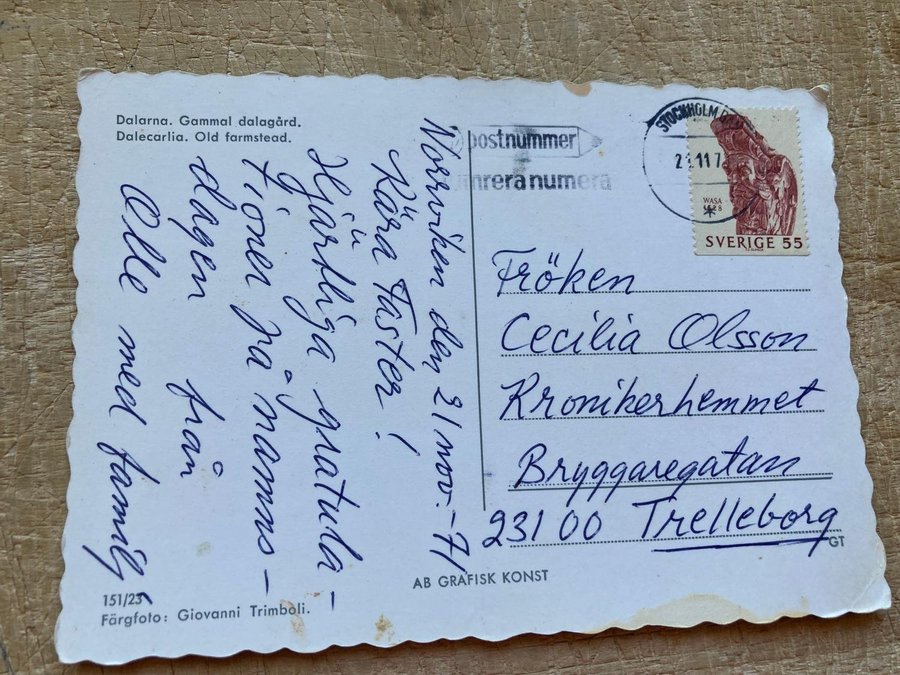 Dalarna. Gammal dalagård.
Dalecarlia. Old farmstead.
Norrviken den 21 nov. -71
Kära Faster!
Hjärtliga gratula-
tioner på namns-
dagen från
Olle med familj
postnummer
numrera numera
STOCKHOLM
11 7
WASA
1628
SVERIGE 55
Fröken
Cecilia Olsson
Kronikerhemmet
Bryggaregatan
231 00 Trelleborg
GT
AB GRAFISK KONST
151/23
Färgfoto: Giovanni Trimboli.